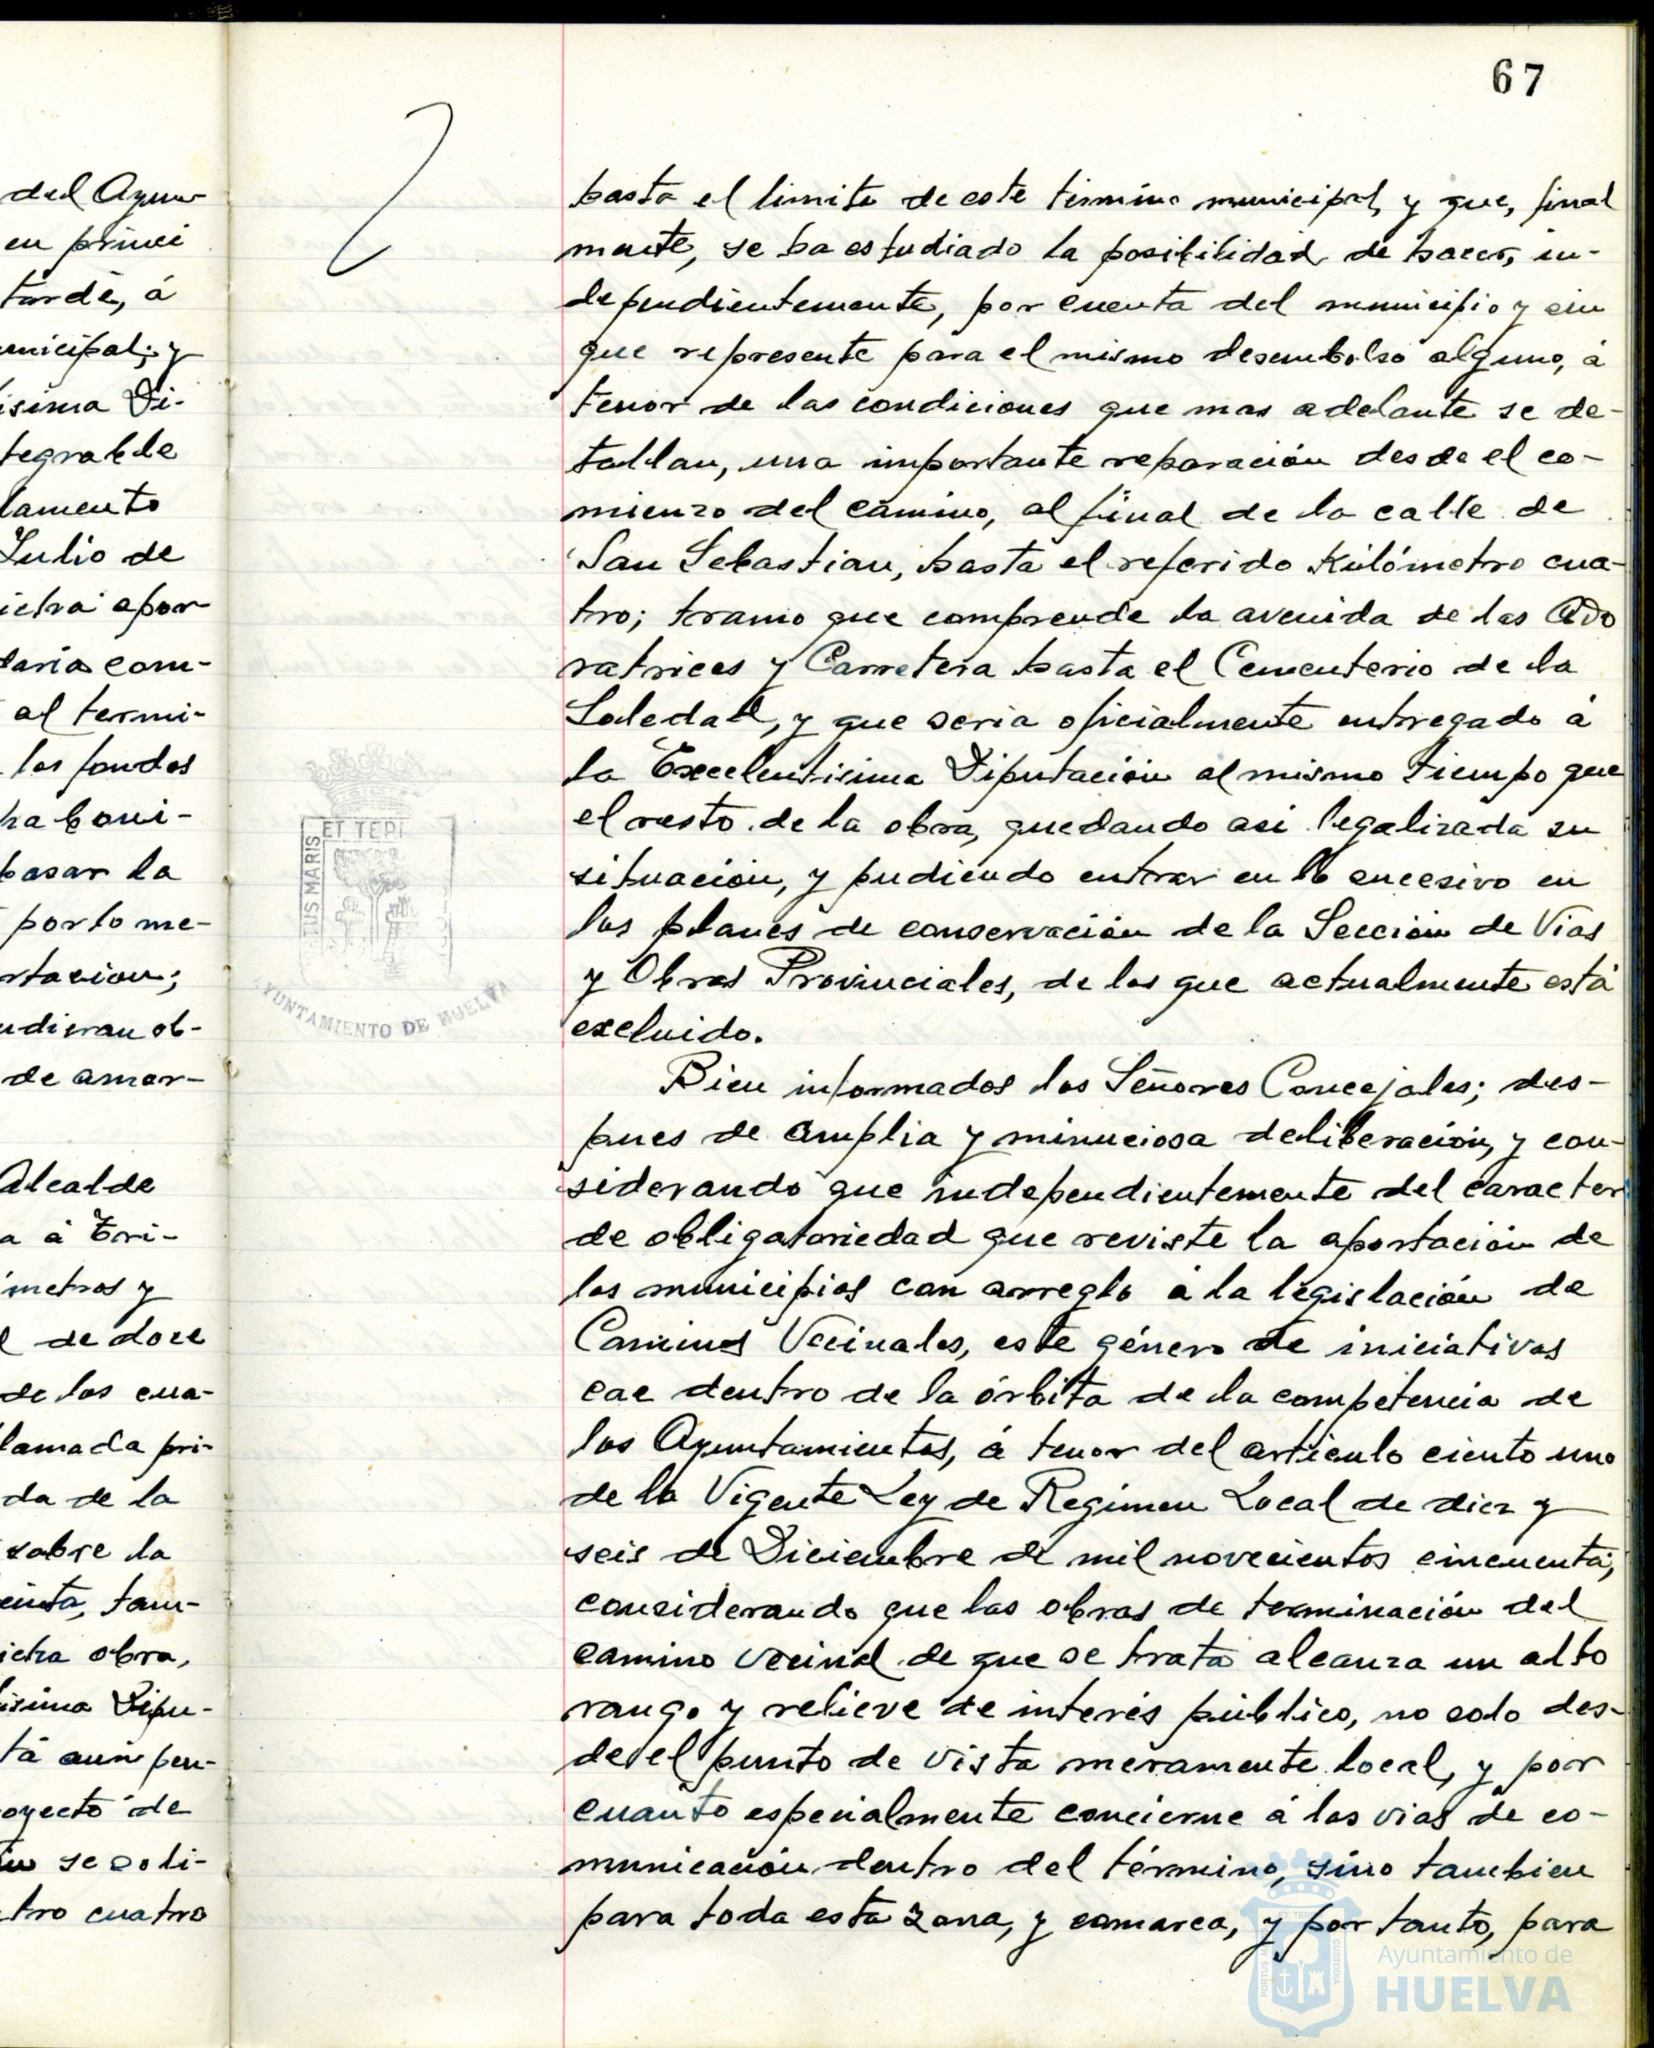 67
del Ayun-
en princi
tarde, á
unicipal; y
ísima Di-
tegrable
lamento
Julio de
icha apor-
taria com-
al termi-
los fondos
ha boni-
basar la
por lo me-
rtacion;
udieran ob-
de amor-
Alcalde
a á Tri-
imetros y
de doce
de los cua-
llamada pri-
da de la
sobre la
cinta, tam-
icha obra,
ísima Dipu-
tá aun pen-
oyecto de
se soli-
tro cuatro
hasta el limite de este término municipal, y que, final
mente, se ha estudiado la posibilidad de hacer, in-
dependientemente, por cuenta del municipio y sin
que represente para el mismo desembolso alguno, á
tenor de las condiciones que mas adelante se de-
tallan, una importante reparación desde el co-
mienzo del camino, al final de la calle de
San Sebastian, hasta el referido kilómetro cua-
tro; tramo que comprende la avenida de las Ado
ratrices y Carretera hasta el Cementerio de la
Soledad, y que seria oficialmente entregado á
la Excelentisima Diputación al mismo tiempo que
el resto de la obra, quedando asi legalizada su
situación, y pudiendo entrar en lo sucesivo en
los planes de conservación de la Sección de Vias
y Obras Provinciales, de los que actualmente está
excluido.
Bien informados los Señores Concejales; des-
pues de amplia y minuciosa deliberación, y con-
siderando que independientemente del caracter
de obligatoriedad que reviste la aportación de
los municipios con arreglo á la legislación de
Caminos Vecinales, este género de iniciativas
cae dentro de la órbita de la competencia de
los Ayuntamientos, á tenor del articulo ciento uno
de la Vigente Ley de Regimen Local de diez y
seis de Diciembre de mil novecientos cincuenta;
considerando que las obras de terminación del
camino vecinal de que se trata alcanza un alto
rango y relieve de interés público, no solo des-
de el punto de vista meramente local, y por
cuanto especialmente concierne á las vias de co-
municación dentro del término, sino tambien
para toda esta zona, y comarca, y por tanto, para
US MARIS ET TER
AYUNTAMIENTO DE HUELVA
Ayuntamiento de
HUELVA